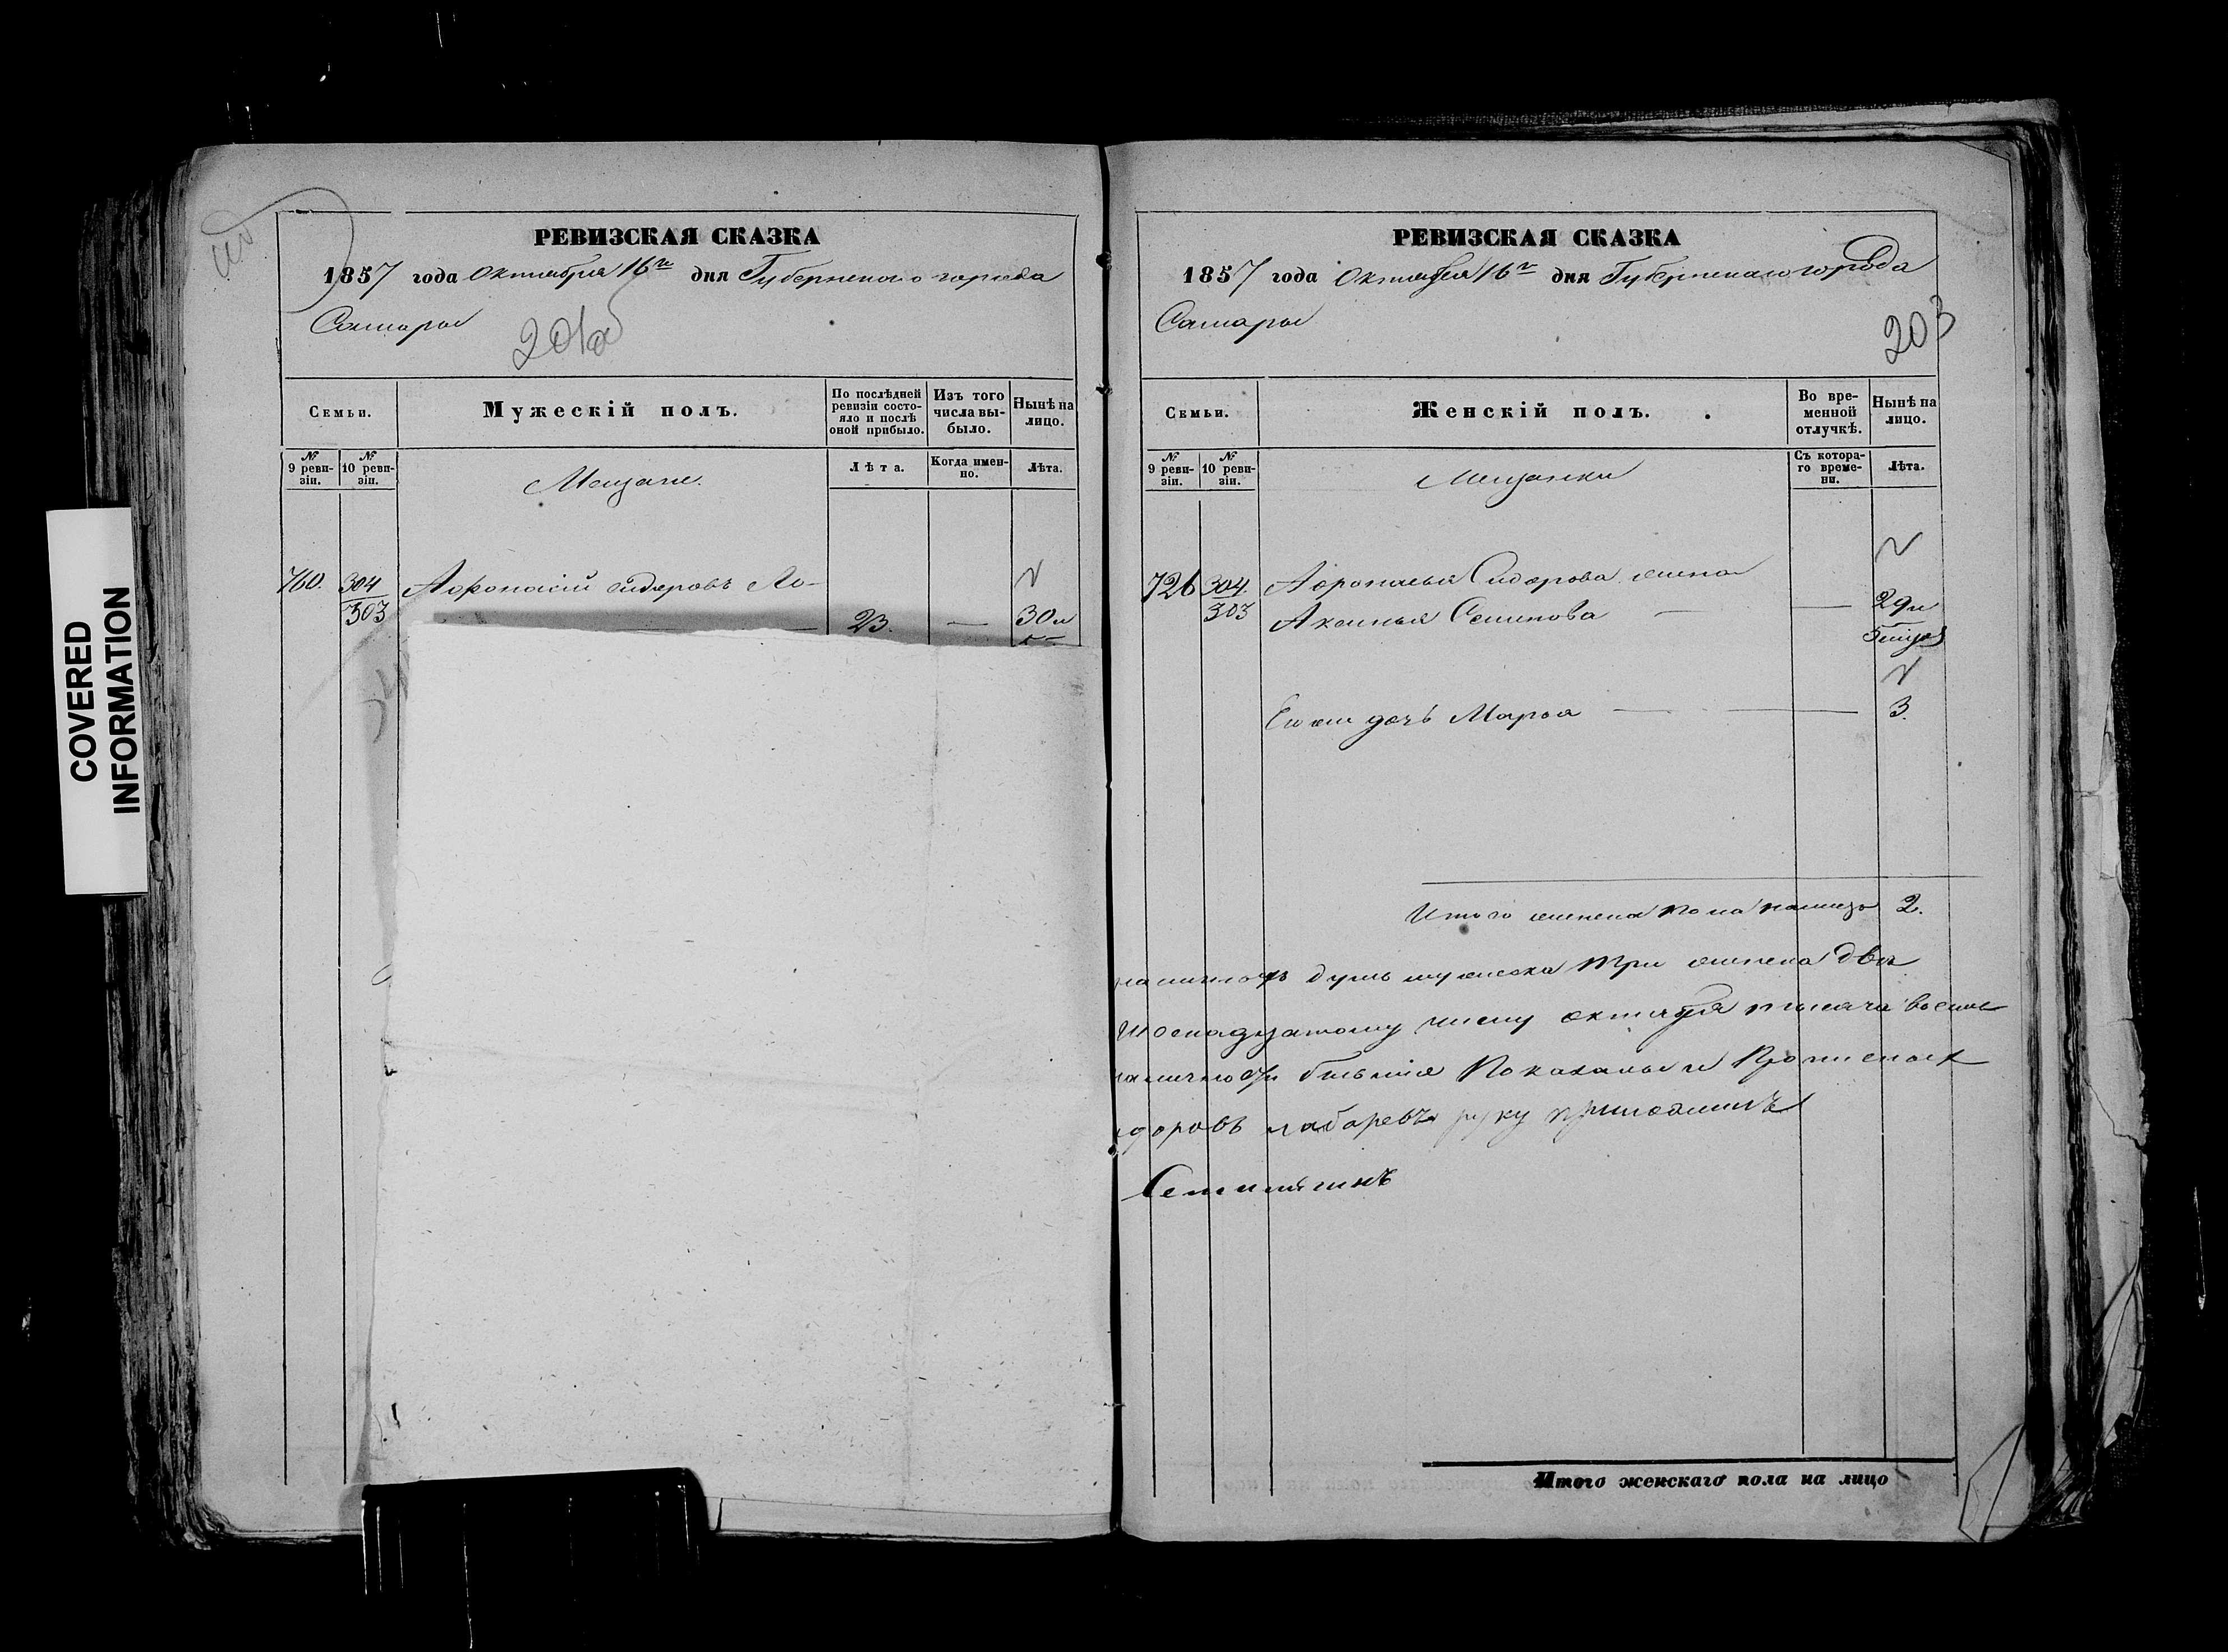 COVERED
INFORMATION
РЕВИЗСКАЯ СКАЗКА
1857 года Октября 16го дня Губернскаго города
Самары
Семьи.
Мужескій полъ.
По послѣдней ревизіи состояло и послѣ оной прибыло.
Изъ того числа выбыло.
Нынѣ на лицо.
№ 9 ревизіи.
№ 10 ревизіи.
Мещане.
Лѣта.
Когда именно.
Лѣта.
760. 304 Афонасій Сидоровъ Ла-
303 23. — 30
РЕВИЗСКАЯ СКАЗКА
1857 года Октября 16го дня Губернскаго города
Самары
203
Семьи.
Женскій полъ.
Во временной отлучкѣ.
Нынѣ на лицо.
№ 9 ревизіи.
№ 10 ревизіи.
Мещанки
Съ котораго времени.
Лѣта.
726 304 Афонасья Сидорова жена
303 Аксинья Семинова — 29
Ево же дочь Марья — 3.
Итого женска пола налицо 2.
душъ мужеска три женска две
шоснадцатому числу октября тысяча восемь
бывшія Показаны и Прописныхъ
лабаревъ руку приложилъ
Итого женскаго пола на лицо